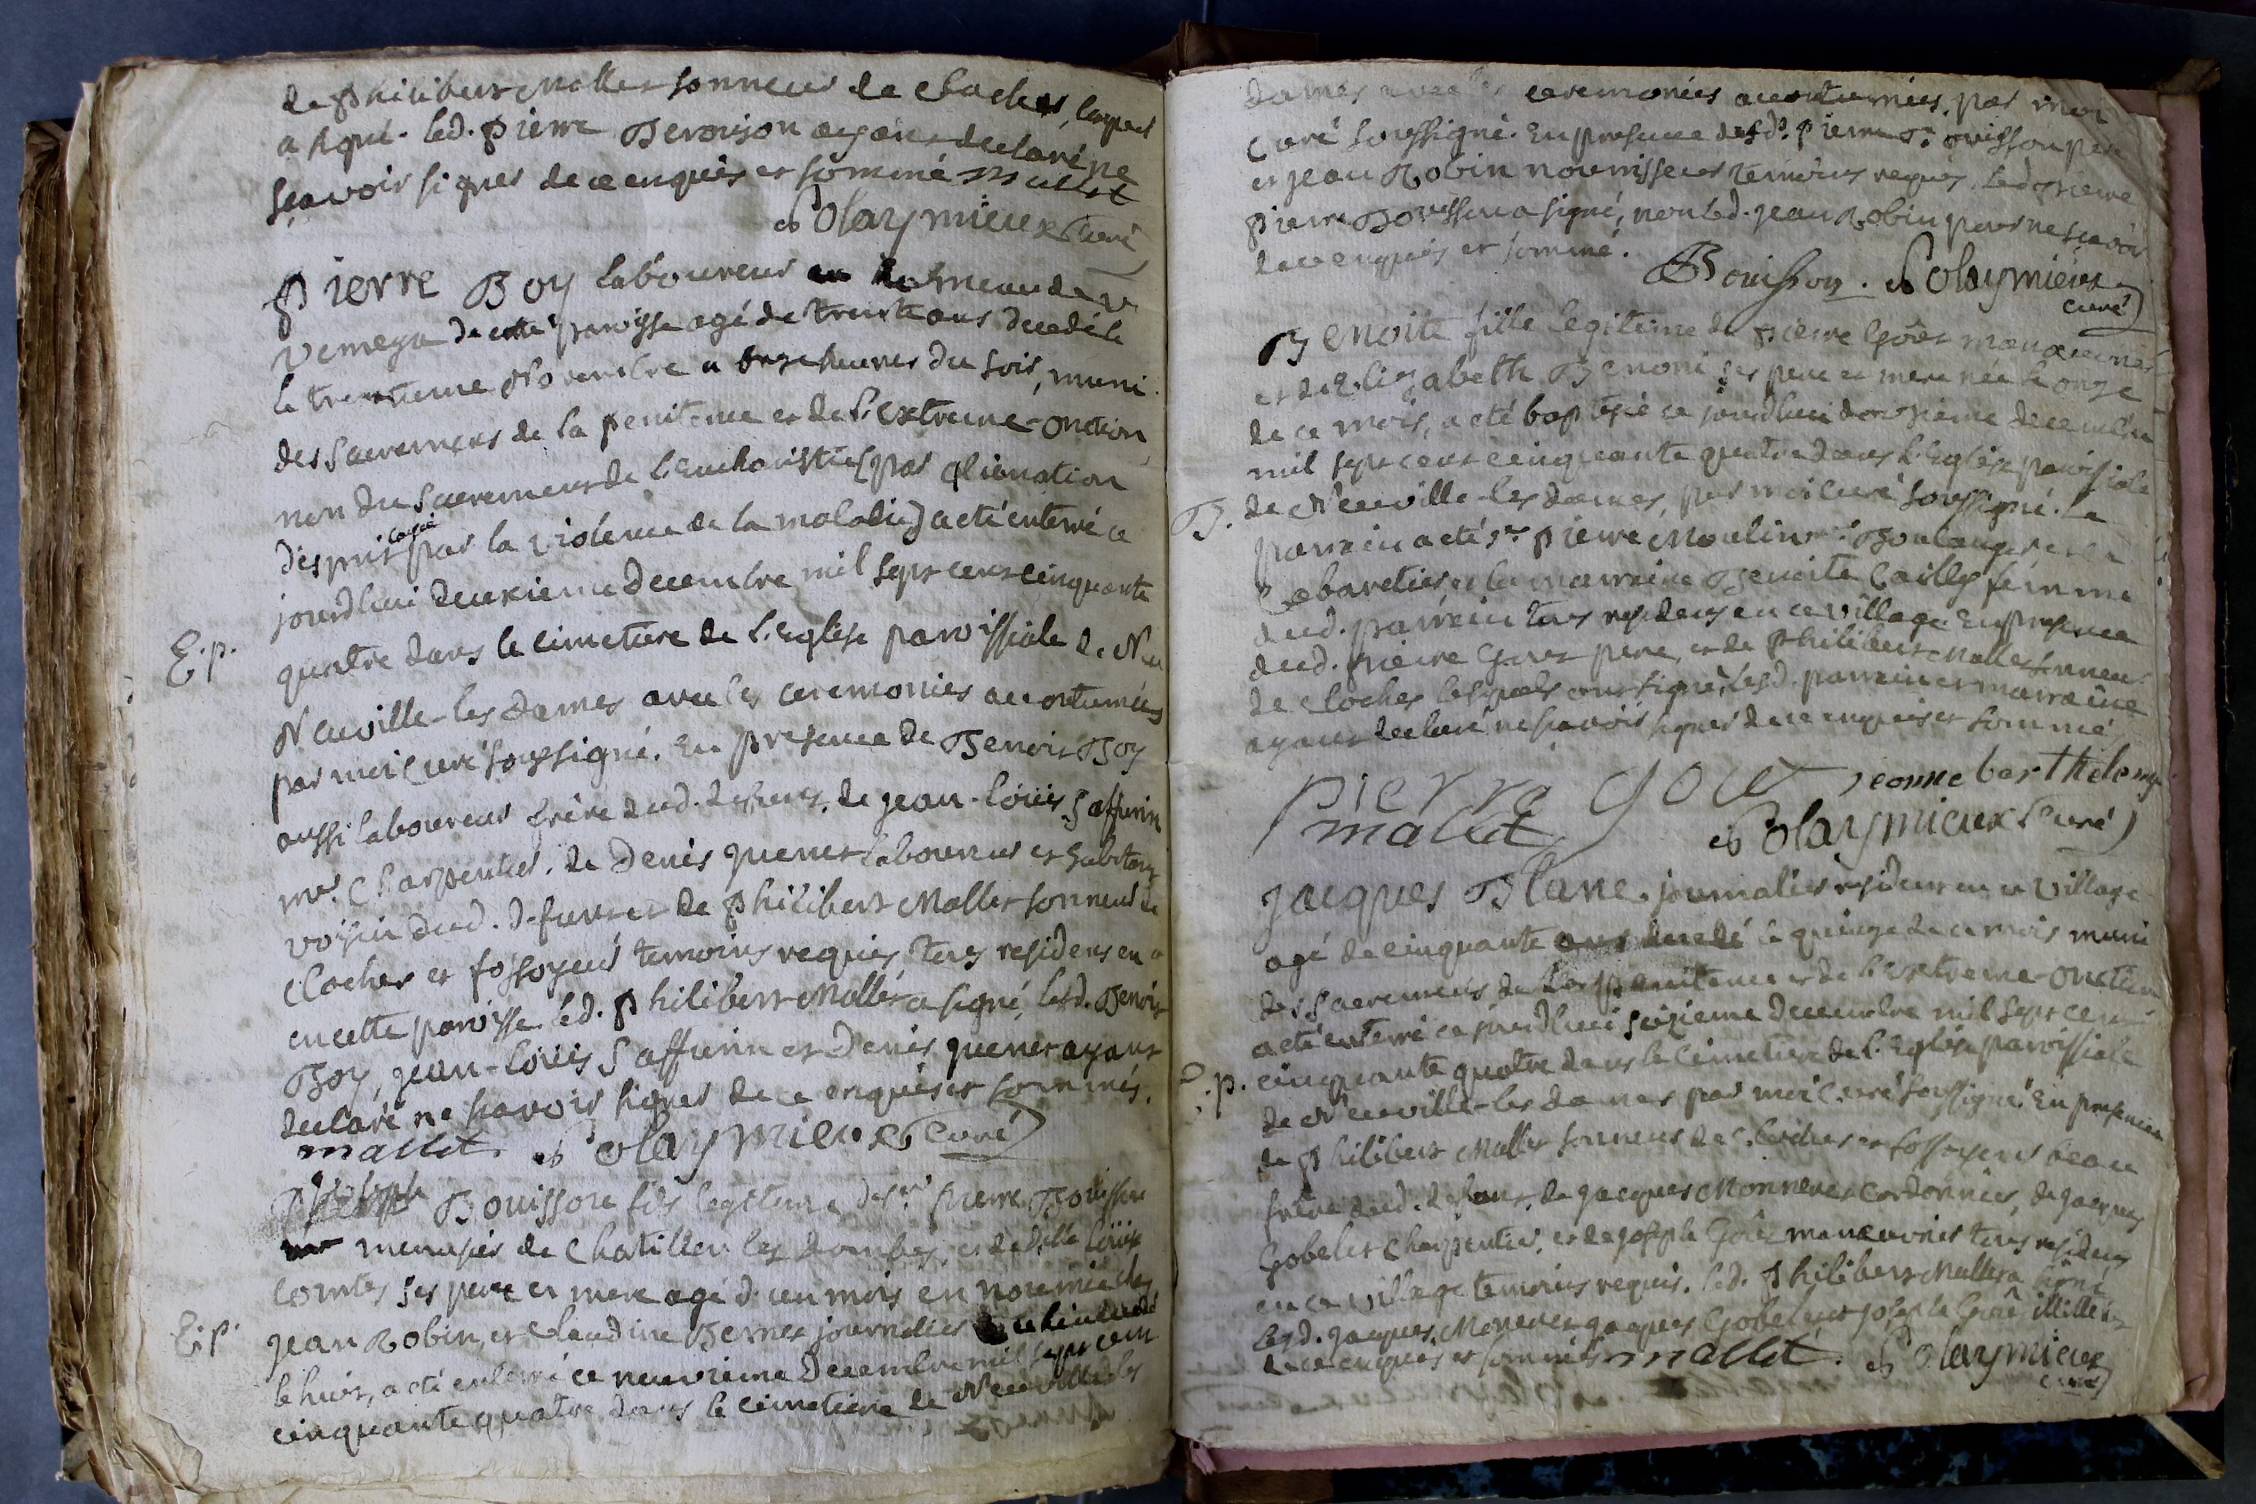 de Philibert Mallet sonneur de cloches, lequel
a signé. led. Pierre Bevoison ayant declaré ne
sçavoir signer de ce enquis et sommé Mallet
Polaymieux Curé
Pierre Boy laboureur au hameau de
Vemeya de cette paroisse agé de trente ans decedé le
le trentieme Novembre a onze heures du soir, muni
des Sacremens de la penitence et de l'Extreme-onction,
non du Sacrement de l'Eucharistie (par alienation
d'esprit causée par la violence de la maladie) a eté enterré ce
jourdhui deuxieme Decembre mil sept cent cinquante
E.p.
quatre dans le cimetiere de l'Eglise paroissiale de Neu
Neuville-les Dames avec les ceremonies accoutumées
par moi Curé soussigné. En presence de Benoit Boy
aussi laboureur frère dud. defunt, de jean-loüis Saffurin
mre. Charpentier, de Denis quenet laboureur et habitant
voisin dud. defunt et de Philibert Mallet sonneur de
Cloches et fossoyeur temoins requis tous residens en
en cette paroisse. led. Philibert Mallet a signé, lesd. Benoit
Boy, jean-loüis Saffurin et Denis quenet ayant
declaré ne sçavoir signer de ce enquis et sommés.
mallet. Polaymieux Curé
Bouisson fils legitime de sr. pierre Bouisson
menusier de Chatillon les Dombes, et de delle loüise
Comtes ses pere et mere agé d'un mois en nourrice chez
E.p.
jean Robin, et Claudine Bernet journalier
le huit, a eté enterré ce neuvieme Decembre mil sept cent
cinquante quatre dans le cimetiere de Neuville les
dames avec les ceremonies accoutumées, par moi
Curé soussigné. En presence desd. Pierre Bouisson pere
et jean Robin nourrisseur temoins requis, led. sieur
Pierre Bouisson a signé, non led. jean Robin pour ne sçavoir
de ce enquis et sommé.
Bouisson. Polaymieux
curé
Benoite fille legitime de pierre Goüet manoeuvrier
et de Elizabeth Benoni ses pere et mere née le onze
de ce mois, a eté baptisée ce jourdhui douzieme decembre
mil sept cent cinquante quatre dans l'Eglise paroissiale
B.
de Neuville-les dames, par moi curé soussigné. Le
parrein a eté sr. pierre Moulin mre. Boulanger et
Cabaretier, et la marreine Benoite Cailly femme
dud. parrein tous residens en ce village. En presence
dud. pierre Gouet pere, et de Philibert Mallet sonneur
de cloches lesquels ont signé, lesd. parrein et marreine
ayant declaré ne sçavoir signer de ce enquis et sommé
pierre gouet jeanne barthelemy
mallet Polaymieux Curé
jacques Blanc journalier residant en ce village
agé de cinquante ans decedé le quinze de ce mois muni
des Sacremens de la penitence et de l'extreme-onction
a eté enterré ce jourdhui seizieme decembre mil sept cent
E.p.
cinquante quatre dans le Cimetiere de l'Eglise paroissiale
de Neuville-les dames par moi Curé soussigné. En presence
de Philibert Mallet sonneur de cloches et fossoyeur beau
frère dud. defunt, de jacques Monneret Cordonnier, de jacques
Gobelet Charpentier, et de joseph Goüet manoeuvrier tous residens
en ce village temoins requis. led. Philibert Mallet a signé
lesd. jacques Moneret jacques Gobelet et joseph Goüet illitterés
de ce enquis et sommés mallet. Polaymieux
curé